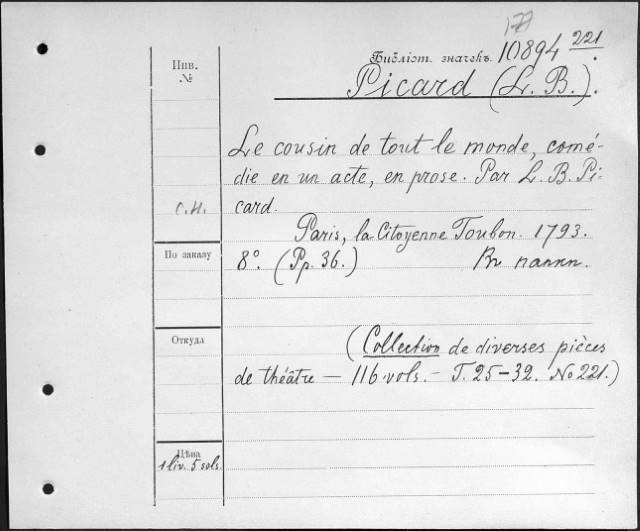 177
Инв.
№
Библіот. значекъ 10894 221.
Picard (L. B.).
Le cousin de tout le monde, comé-
die en un acte, en prose. Par L. B. Pi-
С.Н. card.
Paris, la Citoyenne Toubon. 1793.
По заказу 8°. (Pp. 36.) Въ папкѣ.
Откуда
(Collection de diverses pièces
de théâtre — 116 vols. — T. 25–32. No 221.)
Цѣна
1 liv. 5 sols